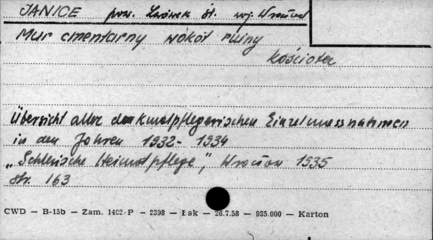 JANICE pow. Lwówek Śl. woj. Wrocław
Mur cmentarny wokół ruiny
kościoła
Übersicht aller denkmalpflegerischen Einzelmassnahmen
in den Jahren 1932 - 1934
"Schlesische Heimatpflege", Wrocław 1935
str. 163
CWD — B-15b — Zam. 1402-P — 2398 — Łak — 26.7.58 — 935.000 — Karton